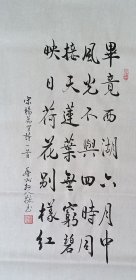 畢竟西湖六月中
風光不與四時同
接天蓮葉無窮碧
映日荷花別樣紅
宋楊萬里詩一首